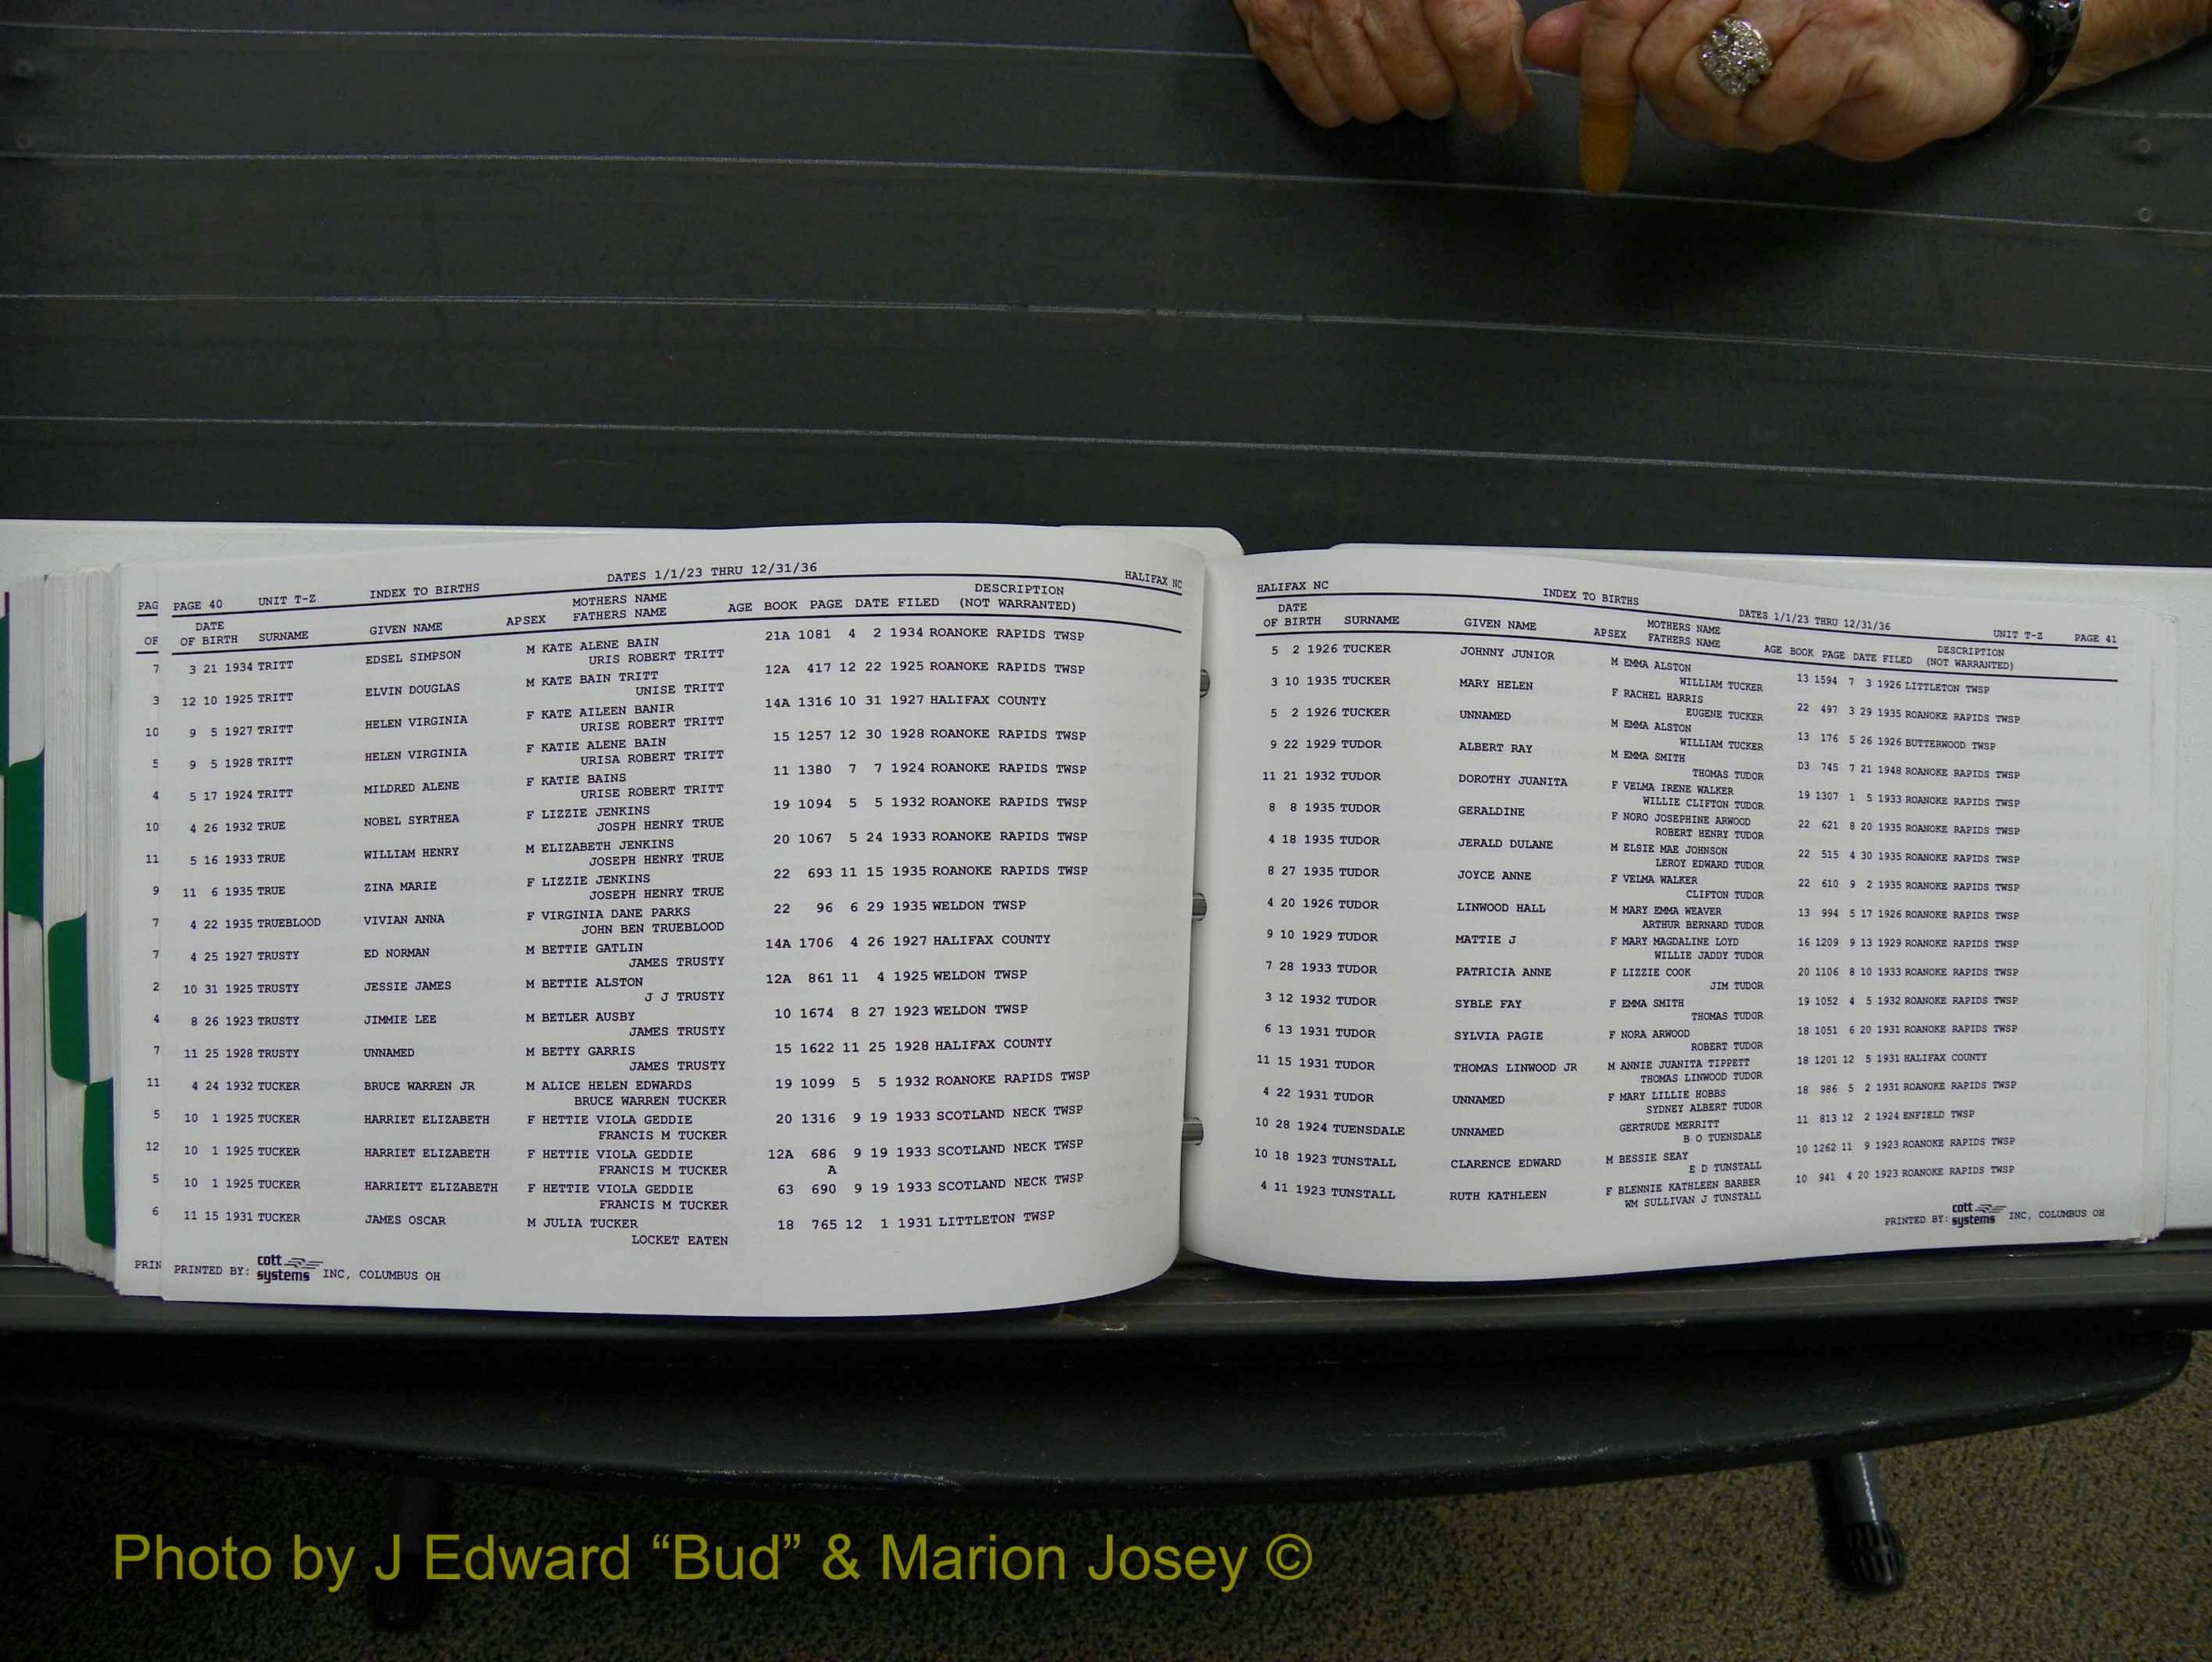 PAG
OF
7
3
10
5
4
10
11
9
7
7
2
4
7
11
5
12
5
6
PRIN
PAGE 40 UNIT T-Z INDEX TO BIRTHS DATES 1/1/23 THRU 12/31/36 HALIFAX NC
DATE MOTHERS NAME DESCRIPTION
OF BIRTH SURNAME GIVEN NAME APSEX FATHERS NAME AGE BOOK PAGE DATE FILED (NOT WARRANTED)
3 21 1934 TRITT EDSEL SIMPSON M KATE ALENE BAIN 21A 1081 4 2 1934 ROANOKE RAPIDS TWSP
URIS ROBERT TRITT
12 10 1925 TRITT ELVIN DOUGLAS M KATE BAIN TRITT 12A 417 12 22 1925 ROANOKE RAPIDS TWSP
UNISE TRITT
9 5 1927 TRITT HELEN VIRGINIA F KATE AILEEN BANIR 14A 1316 10 31 1927 HALIFAX COUNTY
URISE ROBERT TRITT
9 5 1928 TRITT HELEN VIRGINIA F KATIE ALENE BAIN 15 1257 12 30 1928 ROANOKE RAPIDS TWSP
URISA ROBERT TRITT
5 17 1924 TRITT MILDRED ALENE F KATIE BAINS 11 1380 7 7 1924 ROANOKE RAPIDS TWSP
URISE ROBERT TRITT
4 26 1932 TRUE NOBEL SYRTHEA F LIZZIE JENKINS 19 1094 5 5 1932 ROANOKE RAPIDS TWSP
JOSPH HENRY TRUE
5 16 1933 TRUE WILLIAM HENRY M ELIZABETH JENKINS 20 1067 5 24 1933 ROANOKE RAPIDS TWSP
JOSEPH HENRY TRUE
11 6 1935 TRUE ZINA MARIE F LIZZIE JENKINS 22 693 11 15 1935 ROANOKE RAPIDS TWSP
JOSEPH HENRY TRUE
4 22 1935 TRUEBLOOD VIVIAN ANNA F VIRGINIA DANE PARKS 22 96 6 29 1935 WELDON TWSP
JOHN BEN TRUEBLOOD
4 25 1927 TRUSTY ED NORMAN M BETTIE GATLIN 14A 1706 4 26 1927 HALIFAX COUNTY
JAMES TRUSTY
10 31 1925 TRUSTY JESSIE JAMES M BETTIE ALSTON 12A 861 11 4 1925 WELDON TWSP
J J TRUSTY
8 26 1923 TRUSTY JIMMIE LEE M BETLER AUSBY 10 1674 8 27 1923 WELDON TWSP
JAMES TRUSTY
11 25 1928 TRUSTY UNNAMED M BETTY GARRIS 15 1622 11 25 1928 HALIFAX COUNTY
JAMES TRUSTY
4 24 1932 TUCKER BRUCE WARREN JR M ALICE HELEN EDWARDS 19 1099 5 5 1932 ROANOKE RAPIDS TWSP
BRUCE WARREN TUCKER
10 1 1925 TUCKER HARRIET ELIZABETH F HETTIE VIOLA GEDDIE 20 1316 9 19 1933 SCOTLAND NECK TWSP
FRANCIS M TUCKER
10 1 1925 TUCKER HARRIET ELIZABETH F HETTIE VIOLA GEDDIE 12A 686 9 19 1933 SCOTLAND NECK TWSP
FRANCIS M TUCKER A
10 1 1925 TUCKER HARRIETT ELIZABETH F HETTIE VIOLA GEDDIE 63 690 9 19 1933 SCOTLAND NECK TWSP
FRANCIS M TUCKER
11 15 1931 TUCKER JAMES OSCAR M JULIA TUCKER 18 765 12 1 1931 LITTLETON TWSP
LOCKET EATEN
PRINTED BY: cott systems INC, COLUMBUS OH
HALIFAX NC INDEX TO BIRTHS DATES 1/1/23 THRU 12/31/36 UNIT T-Z PAGE 41
DATE MOTHERS NAME DESCRIPTION
OF BIRTH SURNAME GIVEN NAME APSEX FATHERS NAME AGE BOOK PAGE DATE FILED (NOT WARRANTED)
5 2 1926 TUCKER JOHNNY JUNIOR M EMMA ALSTON 13 1594 7 3 1926 LITTLETON TWSP
WILLIAM TUCKER
3 10 1935 TUCKER MARY HELEN F RACHEL HARRIS 22 497 3 29 1935 ROANOKE RAPIDS TWSP
EUGENE TUCKER
5 2 1926 TUCKER UNNAMED M EMMA ALSTON 13 176 5 26 1926 BUTTERWOOD TWSP
WILLIAM TUCKER
9 22 1929 TUDOR ALBERT RAY M EMMA SMITH D3 745 7 21 1948 ROANOKE RAPIDS TWSP
THOMAS TUDOR
11 21 1932 TUDOR DOROTHY JUANITA F VELMA IRENE WALKER 19 1307 1 5 1933 ROANOKE RAPIDS TWSP
WILLIE CLIFTON TUDOR
8 8 1935 TUDOR GERALDINE F NORO JOSEPHINE ARWOOD 22 621 8 20 1935 ROANOKE RAPIDS TWSP
ROBERT HENRY TUDOR
4 18 1935 TUDOR JERALD DULANE M ELSIE MAE JOHNSON 22 515 4 30 1935 ROANOKE RAPIDS TWSP
LEROY EDWARD TUDOR
8 27 1935 TUDOR JOYCE ANNE F VELMA WALKER 22 610 9 2 1935 ROANOKE RAPIDS TWSP
CLIFTON TUDOR
4 20 1926 TUDOR LINWOOD HALL M MARY EMMA WEAVER 13 994 5 17 1926 ROANOKE RAPIDS TWSP
ARTHUR BERNARD TUDOR
9 10 1929 TUDOR MATTIE J F MARY MAGDALINE LOYD 16 1209 9 13 1929 ROANOKE RAPIDS TWSP
WILLIE JADDY TUDOR
7 28 1933 TUDOR PATRICIA ANNE F LIZZIE COOK 20 1106 8 10 1933 ROANOKE RAPIDS TWSP
JIM TUDOR
3 12 1932 TUDOR SYBLE FAY F EMMA SMITH 19 1052 4 5 1932 ROANOKE RAPIDS TWSP
THOMAS TUDOR
6 13 1931 TUDOR SYLVIA PAGIE F NORA ARWOOD 18 1051 6 20 1931 ROANOKE RAPIDS TWSP
ROBERT TUDOR
11 15 1931 TUDOR THOMAS LINWOOD JR M ANNIE JUANITA TIPPETT 18 1201 12 5 1931 HALIFAX COUNTY
THOMAS LINWOOD TUDOR
4 22 1931 TUDOR UNNAMED F MARY LILLIE HOBBS 18 986 5 2 1931 ROANOKE RAPIDS TWSP
SYDNEY ALBERT TUDOR
10 28 1924 TUENSDALE UNNAMED GERTRUDE MERRITT 11 813 12 2 1924 ENFIELD TWSP
B O TUENSDALE
10 18 1923 TUNSTALL CLARENCE EDWARD M BESSIE SEAY 10 1262 11 9 1923 ROANOKE RAPIDS TWSP
E D TUNSTALL
4 11 1923 TUNSTALL RUTH KATHLEEN F BLENNIE KATHLEEN BARBER 10 941 4 20 1923 ROANOKE RAPIDS TWSP
WM SULLIVAN J TUNSTALL
PRINTED BY: cott systems INC, COLUMBUS OH
Photo by J Edward “Bud” & Marion Josey ©